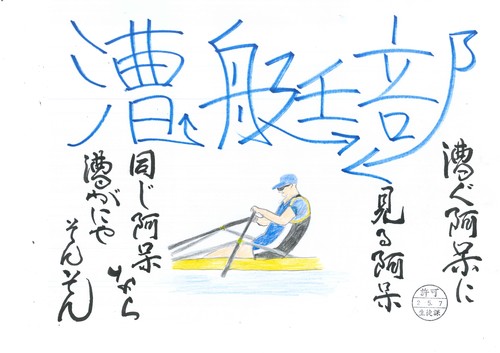 漕艇部
漕ぐ阿呆に
見る阿呆
同じ阿呆
なら
漕がにゃ
そんそん
許可
2.5.7
生徒課